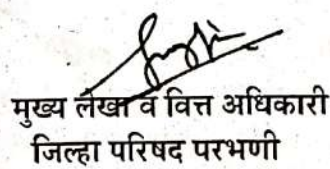 मुख्य लेखा व वित्त अधिकारी
जिल्हा परिषद परभणी